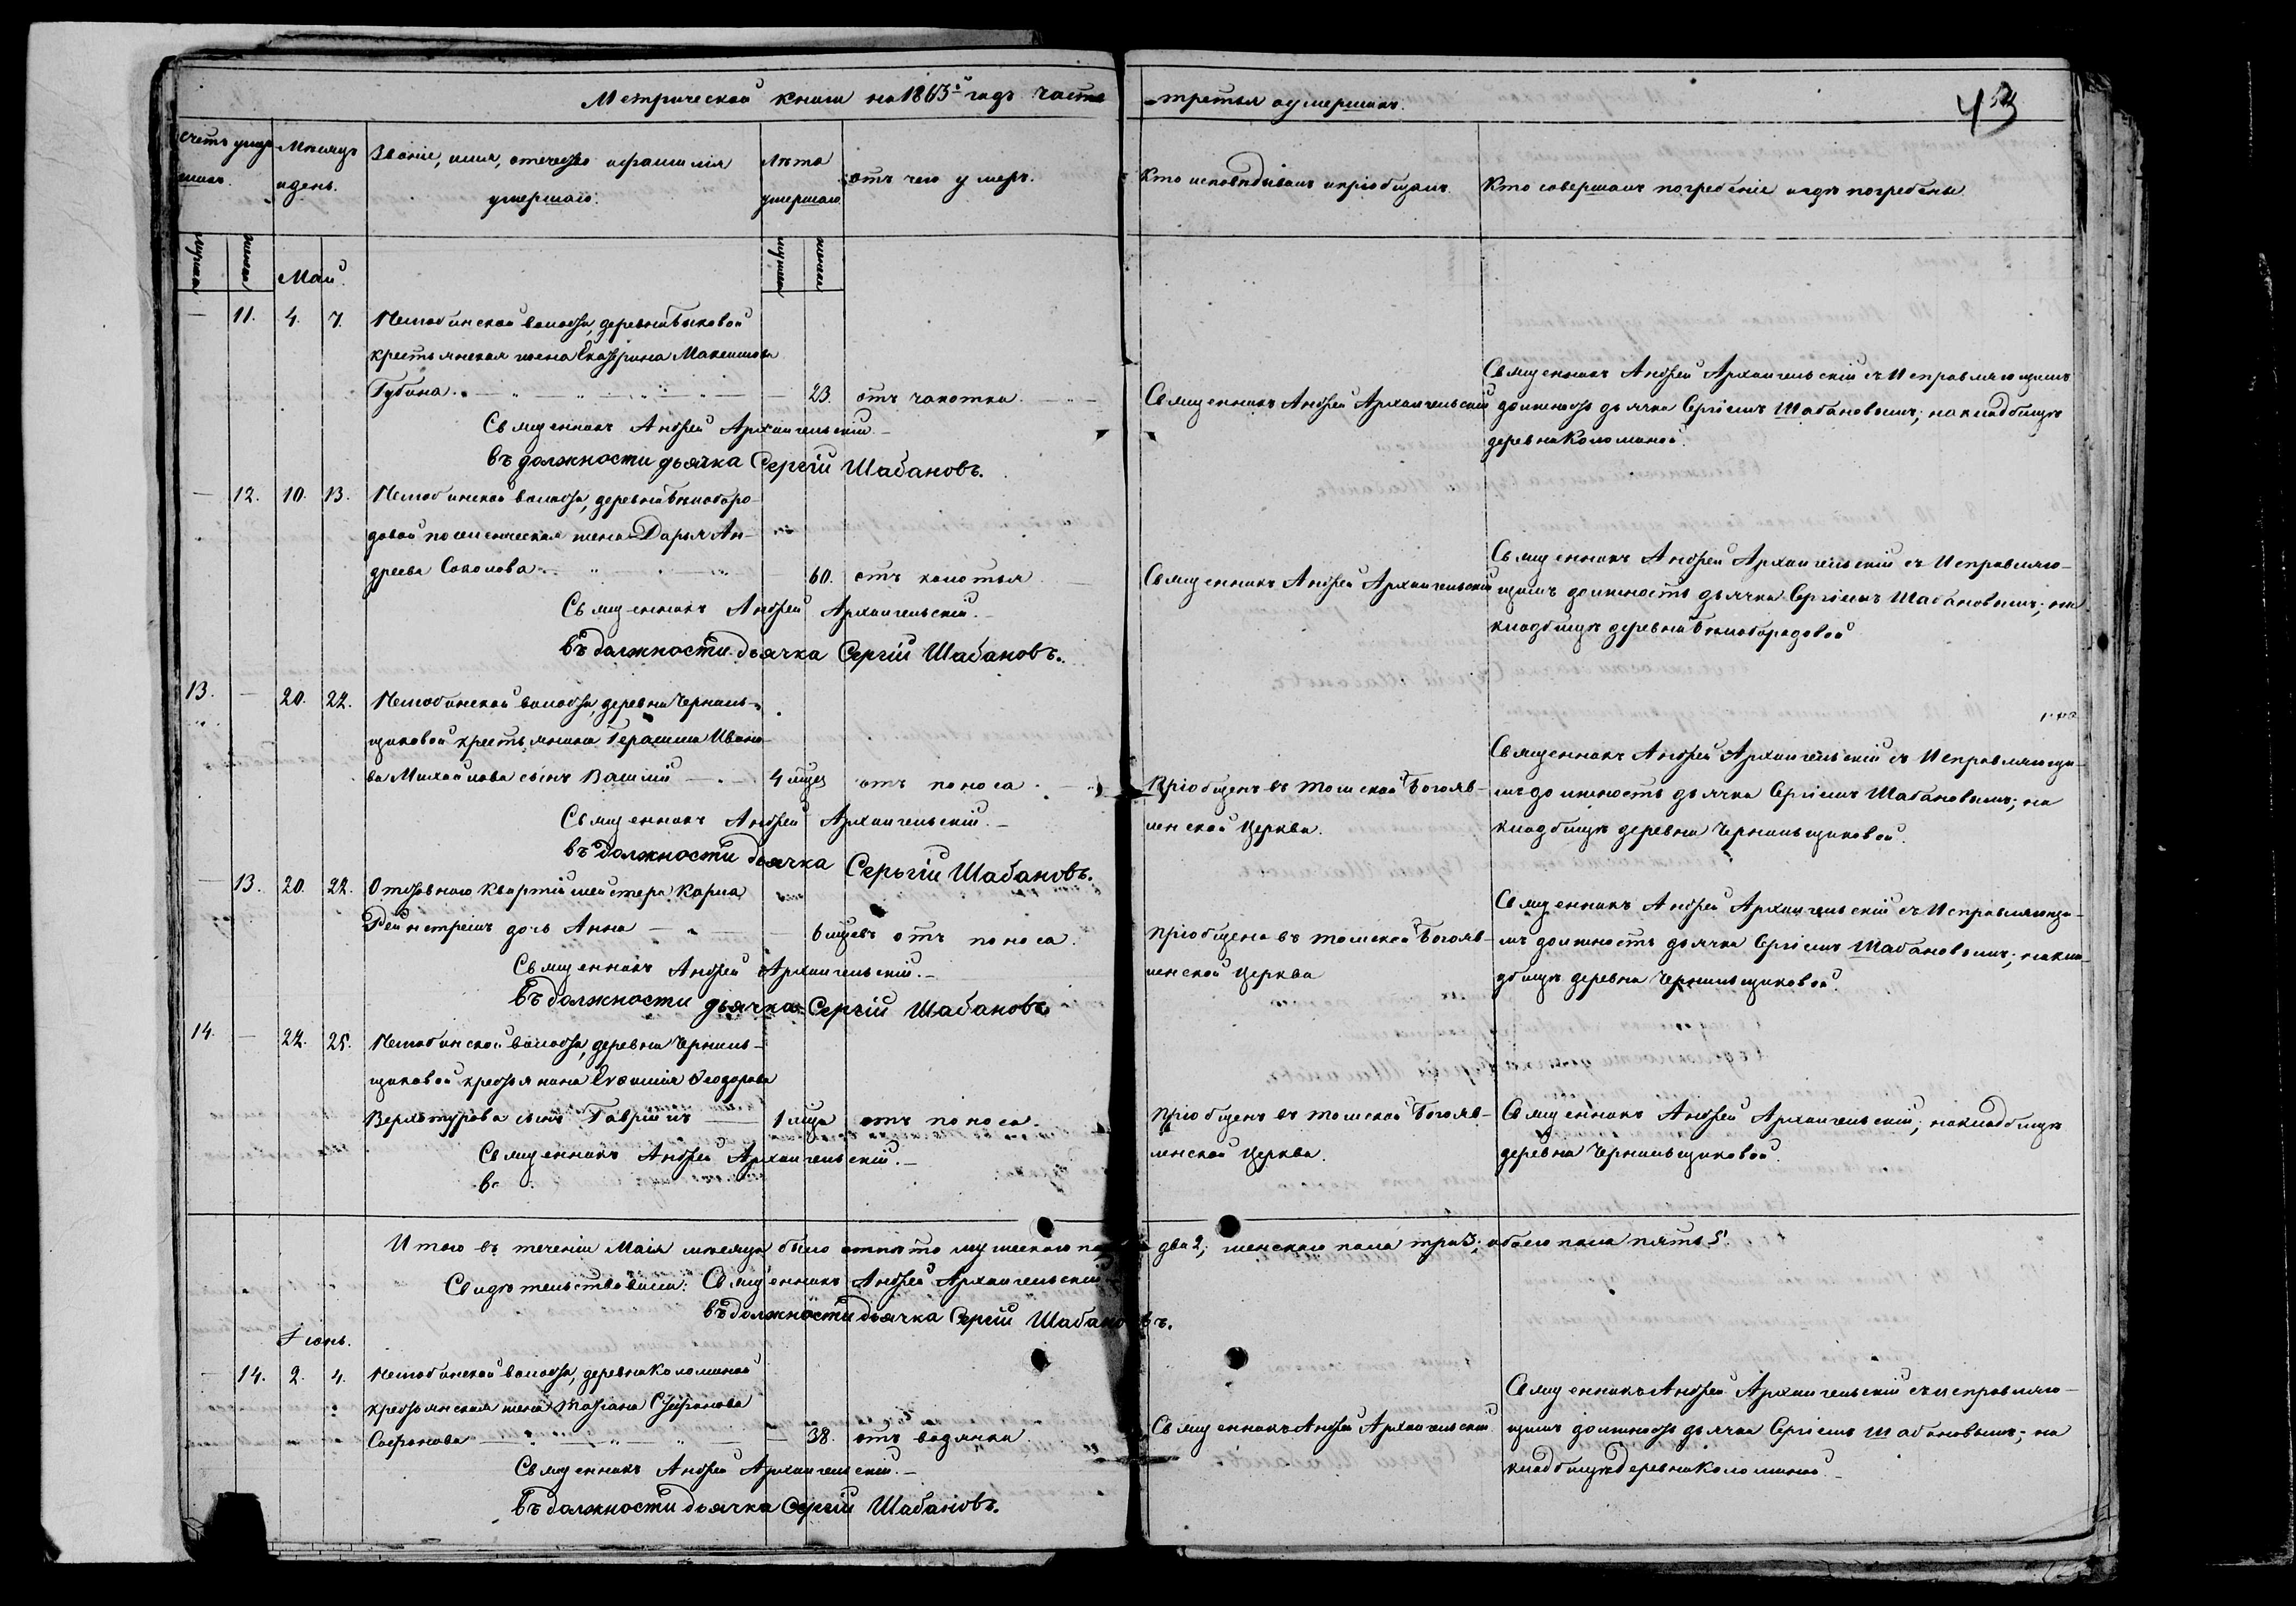 Метрической книги на 1863й годъ часть третья о умершихъ.
43
Счетъ умершихъ.
Мѣсяцъ и день.
Званіе, имя, отечество и фамилія умершаго.
Лѣта умершаго
отъ чего умеръ.
Кто исповѣдывалъ и пріобщалъ.
Кто совершалъ погребеніе и гдѣ погребены.
мужеска
женска
мужеска
женска
Май.
— 11. 4. 7. Нелюбинской волости, деревни Быковой
крестьянская жена Екатерина Максимова
Губина. — 23. отъ чахотки.
Священникъ Андрей Архангельскій
Священникъ Андрей Архангельскій съ Исправляющимъ
должность дьячка Сергіемъ Шабановымъ; на кладбищѣ
деревни Коломиной.
Священникъ Андрей Архангельскій.
въ должности дьячка Сергій Шабановъ.
— 12. 10. 13. Нелюбинской волости, деревни Бѣлоборо-
довой поселенческая жена Дарья Ан-
дреева Соколова — 60. отъ колотья
Священникъ Андрей Архангельскій
Священникъ Андрей Архангельскій съ Исправляю-
щимъ должность дьячка Сергіемъ Шабановымъ; на
кладбищѣ деревни Бѣлобородовой
Священникъ Андрей Архангельскій.
въ должности дьячка Сергій Шабановъ.
13. — 20. 22. Нелюбинской волости, деревни Черниль-
щиковой крестьянина Герасима Ивано-
ва Михайлова сынъ Василій — 4 мѣсяц отъ поноса.
Пріобщенъ въ Томской Богояв-
ленской Церкви.
Священникъ Андрей Архангельскій съ Исправляющи-
мъ должность дьячка Сергіемъ Шабановымъ; на
кладбищѣ деревни Чернильщиковой.
Священникъ Андрей Архангельскій.
въ должности дьячка Серьгій Шабановъ.
— 13. 20. 22. Отставнаго квартирмейстера Карла
дочь Анна — 6 мѣсяцевъ отъ поноса.
пріобщена въ Томской Богояв-
ленской Церкви
Священникъ Андрей Архангельскій съ Исправляющи-
мъ должность дьячка Сергіемъ Шабановымъ; на кла-
дбищѣ деревни Чернильщиковой.
Священникъ Андрей Архангельскій.
въ должности дьячка Сергій Шабановъ.
14. — 22. 25. Нелюбинской волости, деревни Черниль-
щиковой крестьянина Евфимія Феодорова
Верхотурова сынъ Гавріилъ — 1 мѣсяца отъ поноса.
пріобщенъ въ Томской Богояв-
ленской Церкви.
Священникъ Андрей Архангельскій; на кладбищѣ
деревни Чернильщиковой.
Священникъ Андрей Архангельскій.
въ
Итого въ теченіи Маія мѣсяца было отпѣто мужескаго пола два 2; женскаго пола три 3; обоего пола пять 5.
Свидѣтельствовали: Священникъ Андрей Архангельскій
въ должности дьячка Сергій Шабановъ.
Іюнь.
— 14. 2. 4. Нелюбинской волости, деревни Коломиной
крестьянская жена Татіана Стефанова
Сафонова — 38. отъ водянки
Священникъ Андрей Архангельскій
Священникъ Андрей Архангельскій съ исправляю-
щимъ должность дьячка Сергіемъ Шабановымъ; на
кладбищѣ деревни Коломиной.
Священникъ Андрей Архангельскій.
въ должности дьячка Сергій Шабановъ.